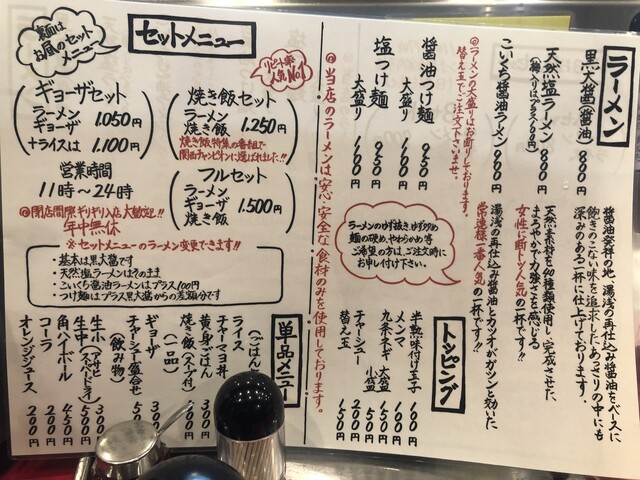 ラーメン
黒大醤(醤油) 800円
醤油発祥の地 湯浅の再仕込み醤油をベースに
飽きのこない味を追求したあっさりの中にも
深みのある一杯に仕上げております。
天然塩ラーメン 800円
(柚入りはプラス100円)
天然素材を40種類使用して完成させた、
まろやかで力強さを感じる
女性に断トツ人気の一杯です!!
こいくち醤油ラーメン 900円
湯浅の再仕込み醤油とカツオがガツンと効いた、
常連様一番人気の一杯です!!
◎ラーメンの大盛りはお断りしております。
替え玉でご注文下さいませ。
醤油つけ麺 850円
大盛り 950円
塩つけ麺 850円
大盛り 950円
ラーメンのゆず抜き、ゆず多め
麺の硬め、やわらかめ等
ご希望の方は、ご注文時に
お申し付け下さい。
トッピング
半熟味付け玉子 100円
メンマ 100円
九条ネギ 大盛 150円
小盛 50円
チャーシュー 200円
替え玉 150円
◎当店のラーメンは安心・安全な食材のみを使用しております。
裏面は
お昼のセット
メニュー
セットメニュー
リピート率
人気No1
ギョーザセット
ラーメン
ギョーザ
1.050円
+ライスは 1.100円
焼き飯セット
ラーメン
焼き飯
1.250円
焼き飯特集の番組で
関西チャンピオンに選ばれました!!
フルセット
ラーメン
ギョーザ
焼き飯
1.500円
営業時間
11時~24時
◎閉店間際ギリギリ入店大歓迎!!
年中無休
※セットメニューのラーメン変更できます!!
・基本は黒大醤です
・天然塩ラーメンはそのまま
・こいくち醤油ラーメンはプラス100円
・つけ麺はプラス黒大醤からの差額分です
単品メニュー
(ごはん)
ライス
チャーマヨ丼
黄身ごはん 300円
焼き飯(スープ付) 500円
(一品)
ギョーザ 300円
チャーシュー盛合せ
(飲み物)
生小(アサヒ 300円
生中(スーパードライ) 500円
角ハイボール 450円
コーラ 200円
オレンジジュース 200円